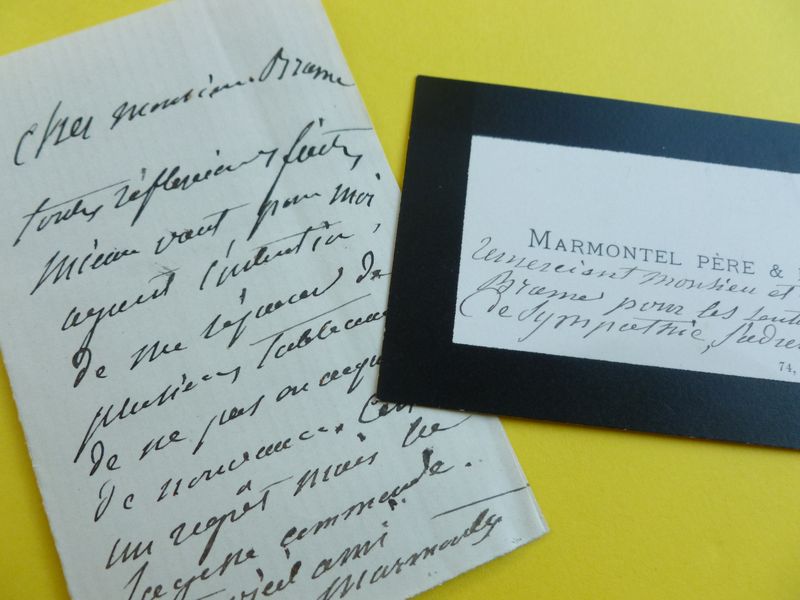 Cher Monsieur Brame
toutes réflexions faites
mieux vaut pour moi
ayant l'intention,
de me séparer de
plusieurs tableaux
de ne pas en acqu
de nouveaux. C'est
un regrêt mais la
sagesse commande.
vieil ami
Marmontel
MARMONTEL PÈRE &
remerciant monsieur et
Brame pour les
de sympathie, s'adres
74,